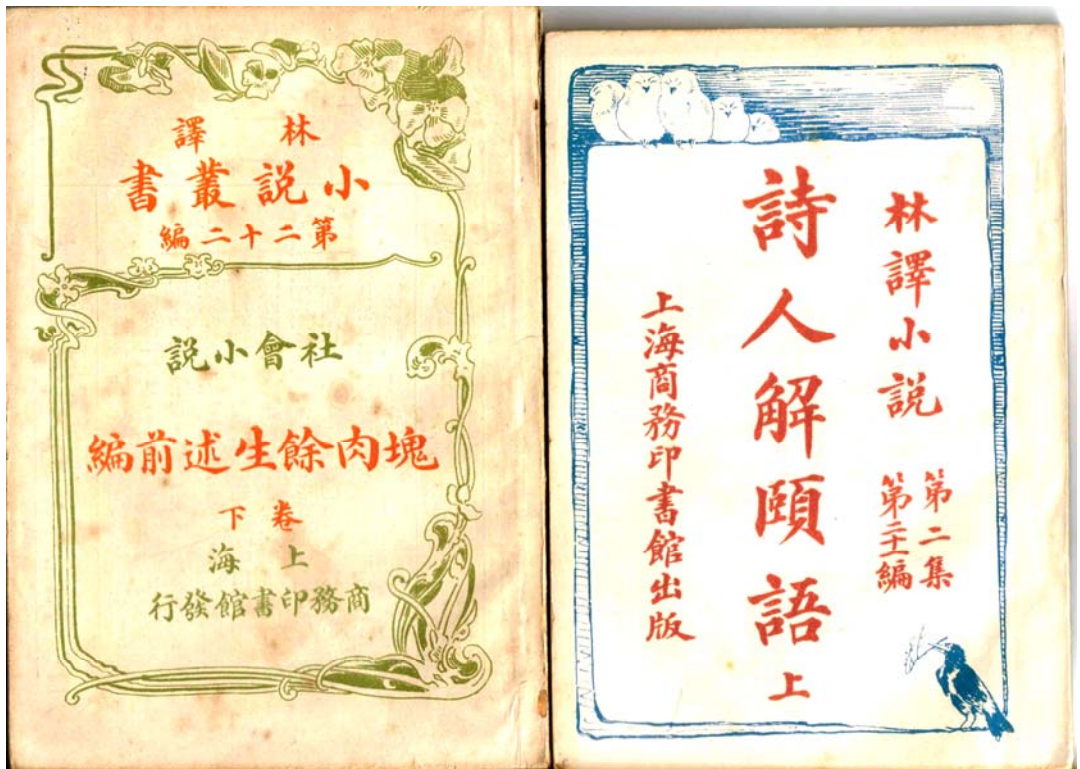 林譯
小説叢書
第二十二編
社會小説
塊肉餘生述前編
卷下
上海
商務印書館發行
林譯小説
第二集
第編
詩人解頤語 上
上海商務印書館出版